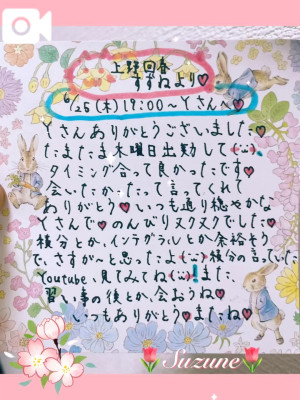 上野回春
すずねより♡
6/26(木)19:00〜Yさんへ♡
Yさんありがとうございました♡
たまたま木曜日出勤して(¨̮)
タイミング合って良かったです♡
会いたかったって言ってくれて
ありがとう♡いつも通り穏やかな
Yさんで♥のんびりヌクヌクでした♡
積分とか、インテグラルとか余裕そう
で、さすが〜と思ったよ(¨̮)積分の言っていた
Youtube、見てみてね(¨̮)!また、
習い事の後とか、会おうね♡
いつもありがとう♡またね♡
Suzune